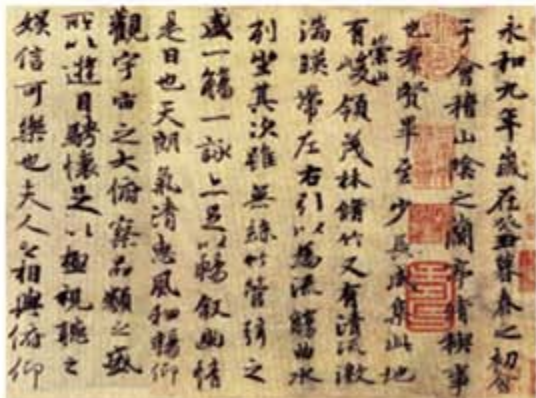 永和九年歲在癸丑暮春之初會
于會稽山陰之蘭亭脩稧事
也羣賢畢至少長咸集此地
有崇山峻領茂林脩竹又有清流激
湍暎帶左右引以為流觴曲水
列坐其次雖無絲竹管弦之
盛一觴一詠亦足以暢敘幽情
是日也天朗氣清惠風和暢仰
觀宇宙之大俯察品類之盛
所以遊目騁懷足以極視聽之
娛信可樂也夫人之相與俯仰